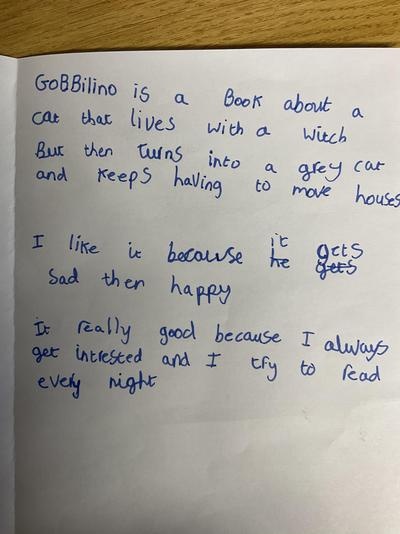 GoBBilino is a Book about a
cat that lives with a witch
But then turns into a grey cat
and keeps having to move houses
I like it because it gets
he gets
sad then happy
It really good because I always
get intrested and I try to read
every night